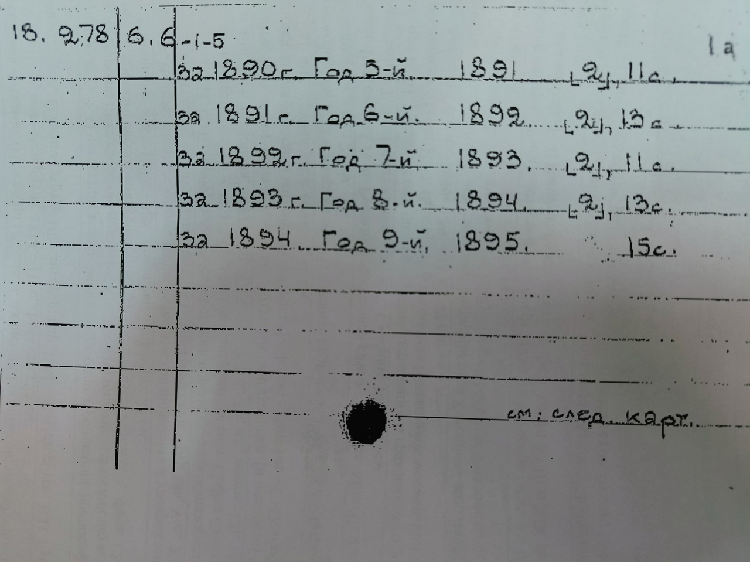 18. 278 6.6 -1-5 1а
за 1890 г. Год 5-й 1891 [2], 11с.
за 1891 г. Год 6-й. 1892 [2], 13с.
за 1892 г. Год 7-й 1893. [2], 11с.
за 1893 г. Год 8-й. 1894. [2], 13с.
за 1894 Год 9-й. 1895. 15с.
см. след. карт.